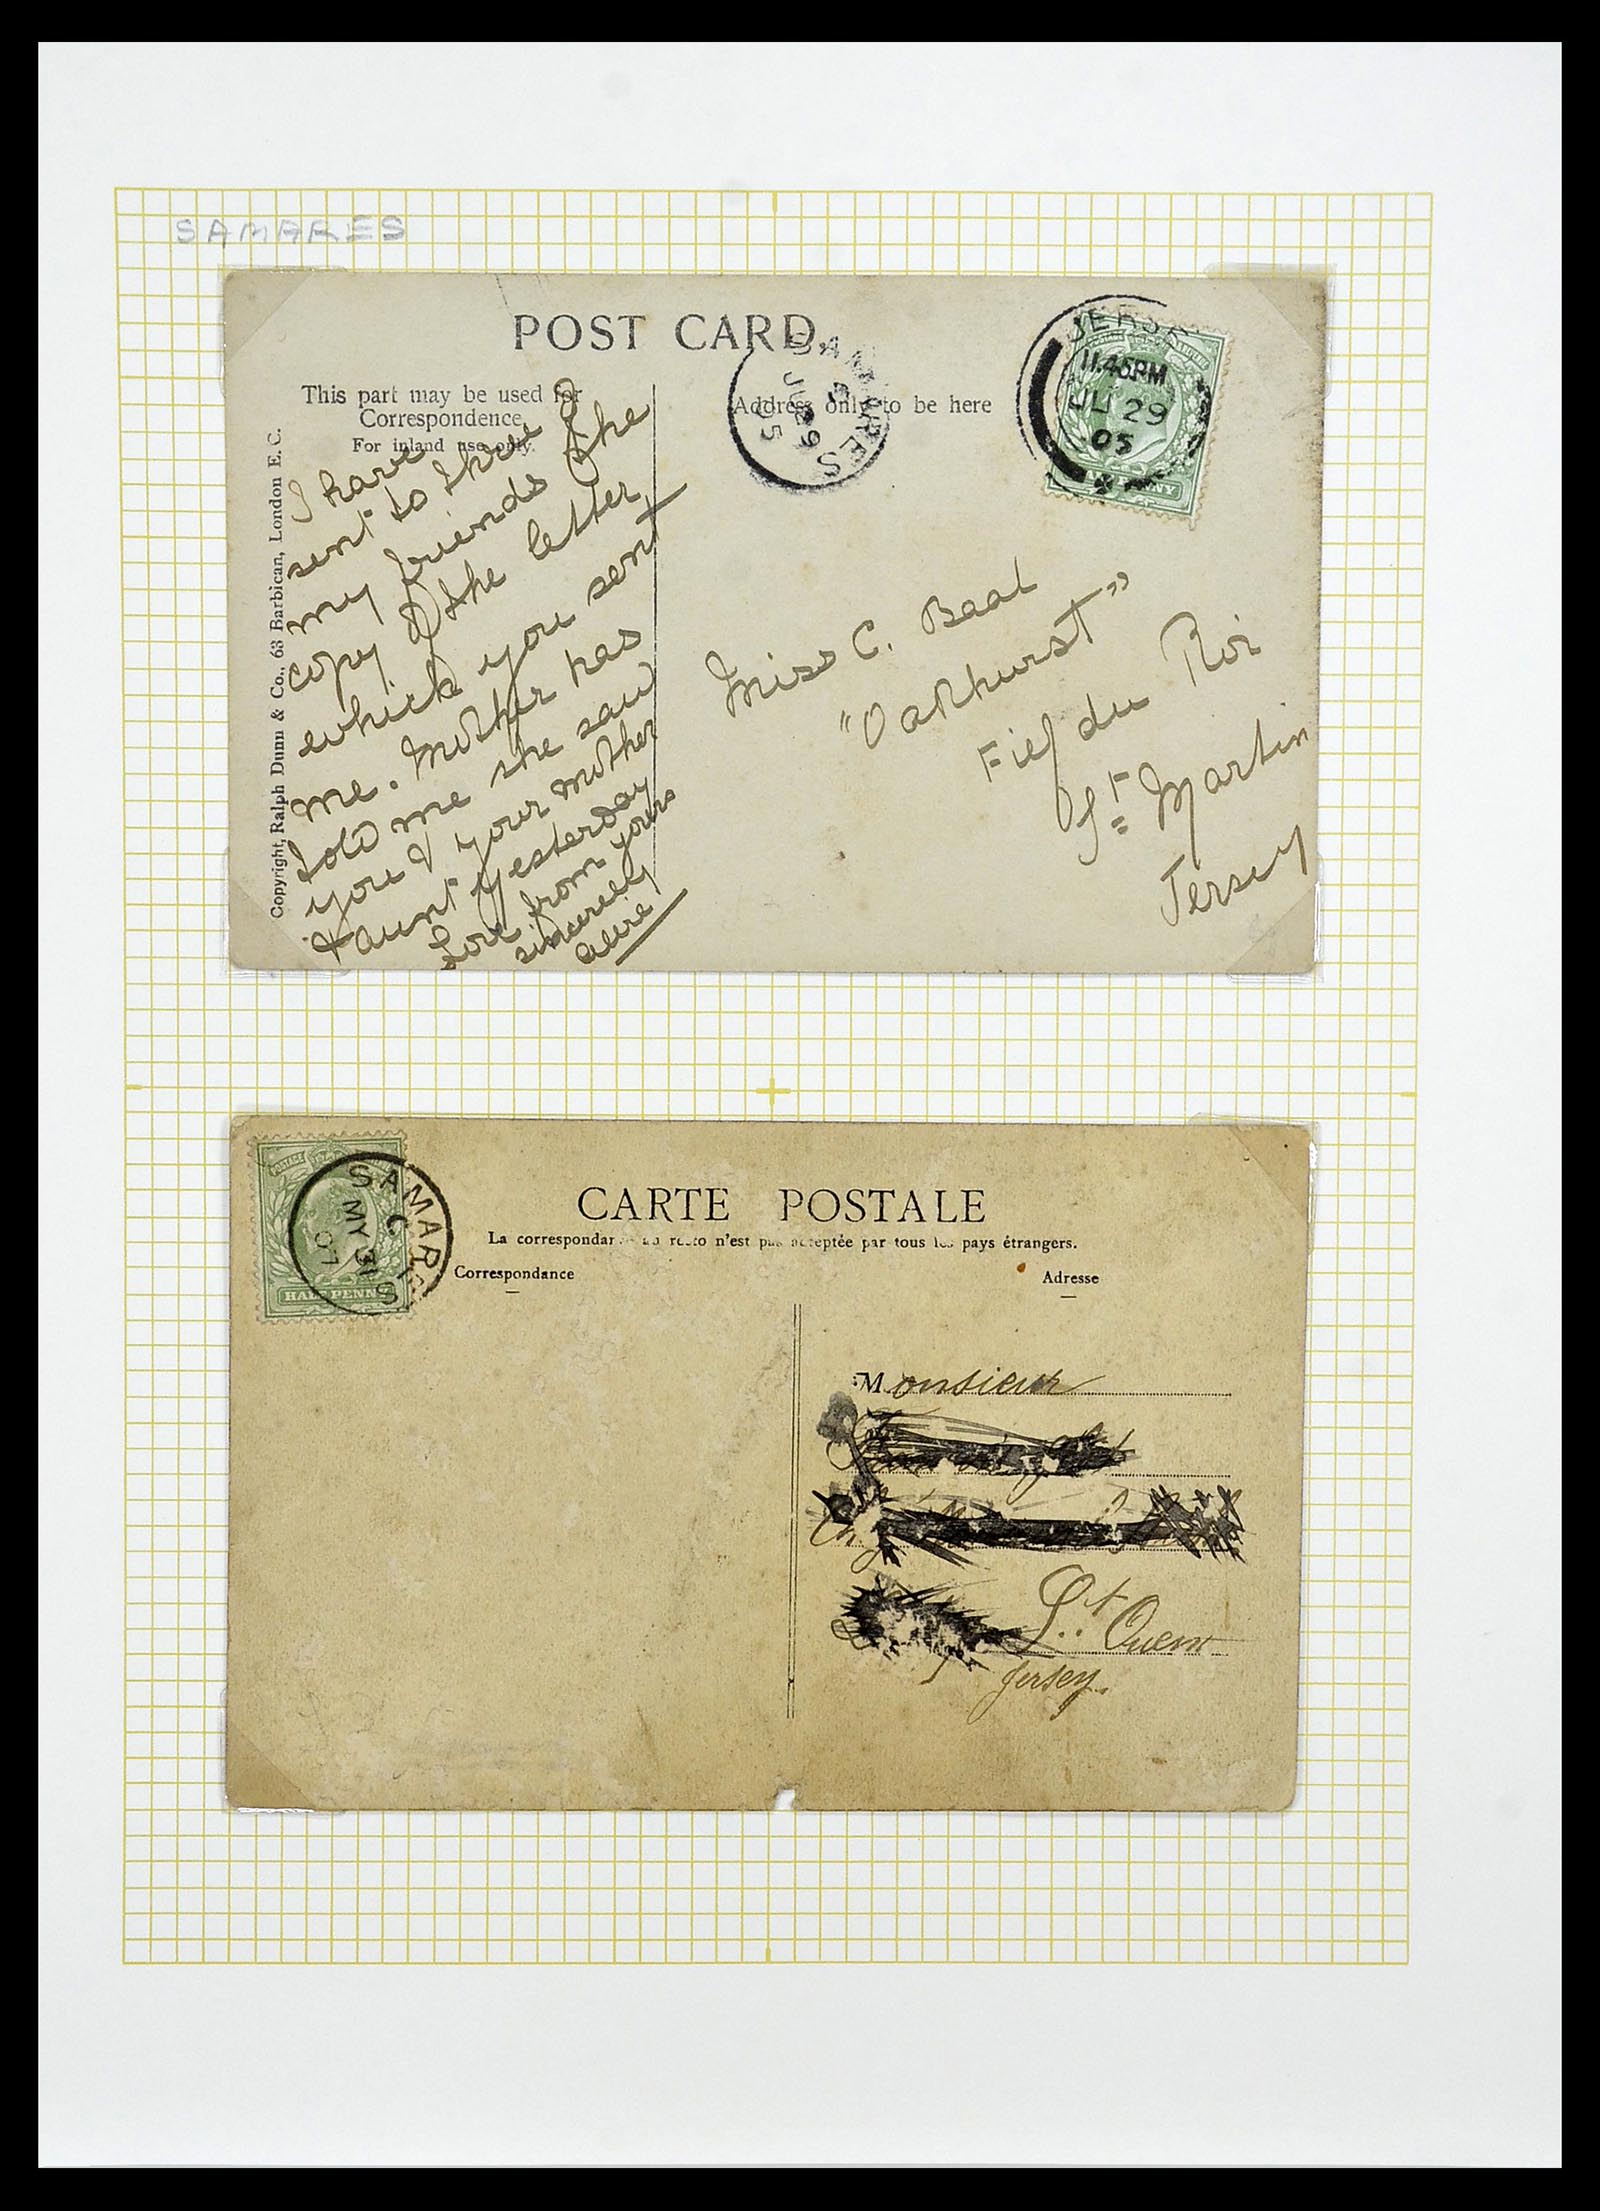 SAMARES
POST CARD.
This part may be used for
Correspondence
For inland use only.
Address only to be here
SAMARES
JU 29
05
JERS
11.45PM
JU 29
05
NY
Copyright, Ralph Dunn & Co., 63 Barbican, London E. C.
I have
sent to three of
my friends the
copy of the letter
which you sent
me. Mother has
told me she saw
you & your mother
& aunt yesterday
Love from yours
sincerely
Miss C. Baal
"Oakhurst"
Fief du Roi
St. Martin
Jersey
SAMARES
C
MY 31
07
HALF PENNY
CARTE POSTALE
La correspondance au recto n'est pas acceptée par tous les pays étrangers.
Correspondance
Adresse
Monsieur
St. Ouen
Jersey.